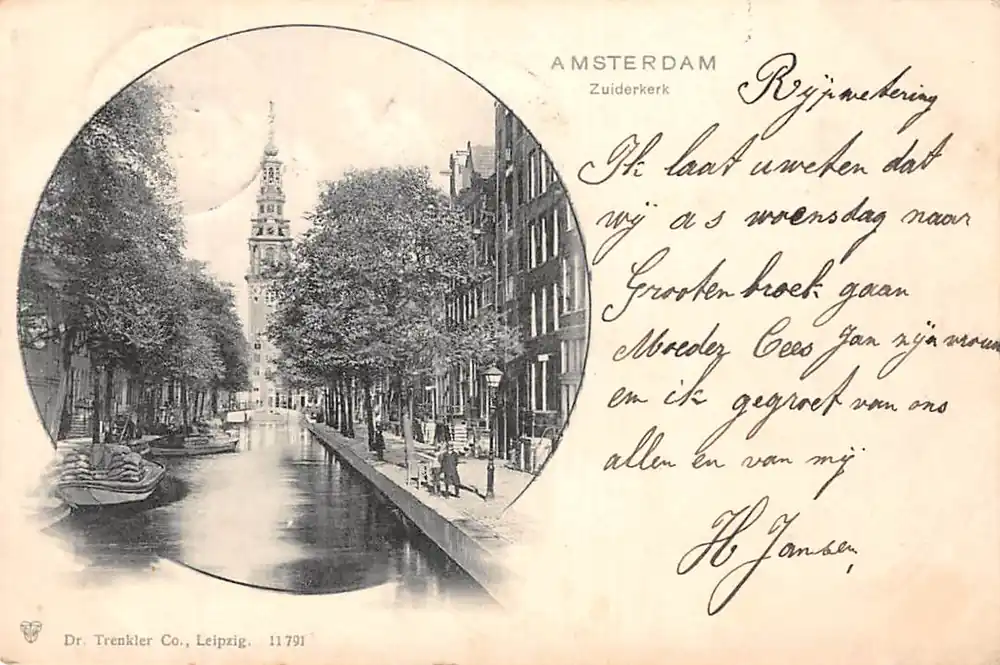 AMSTERDAM
Zuiderkerk
Rijpwetering
Ik laat u weten dat
wij a s woensdag naar
Grootenbroek gaan
Moeder Cees Jan zijn vrouw
en ik gegroet van ons
allen en van mij
H Jansen,
Dr. Trenkler Co., Leipzig. 11791